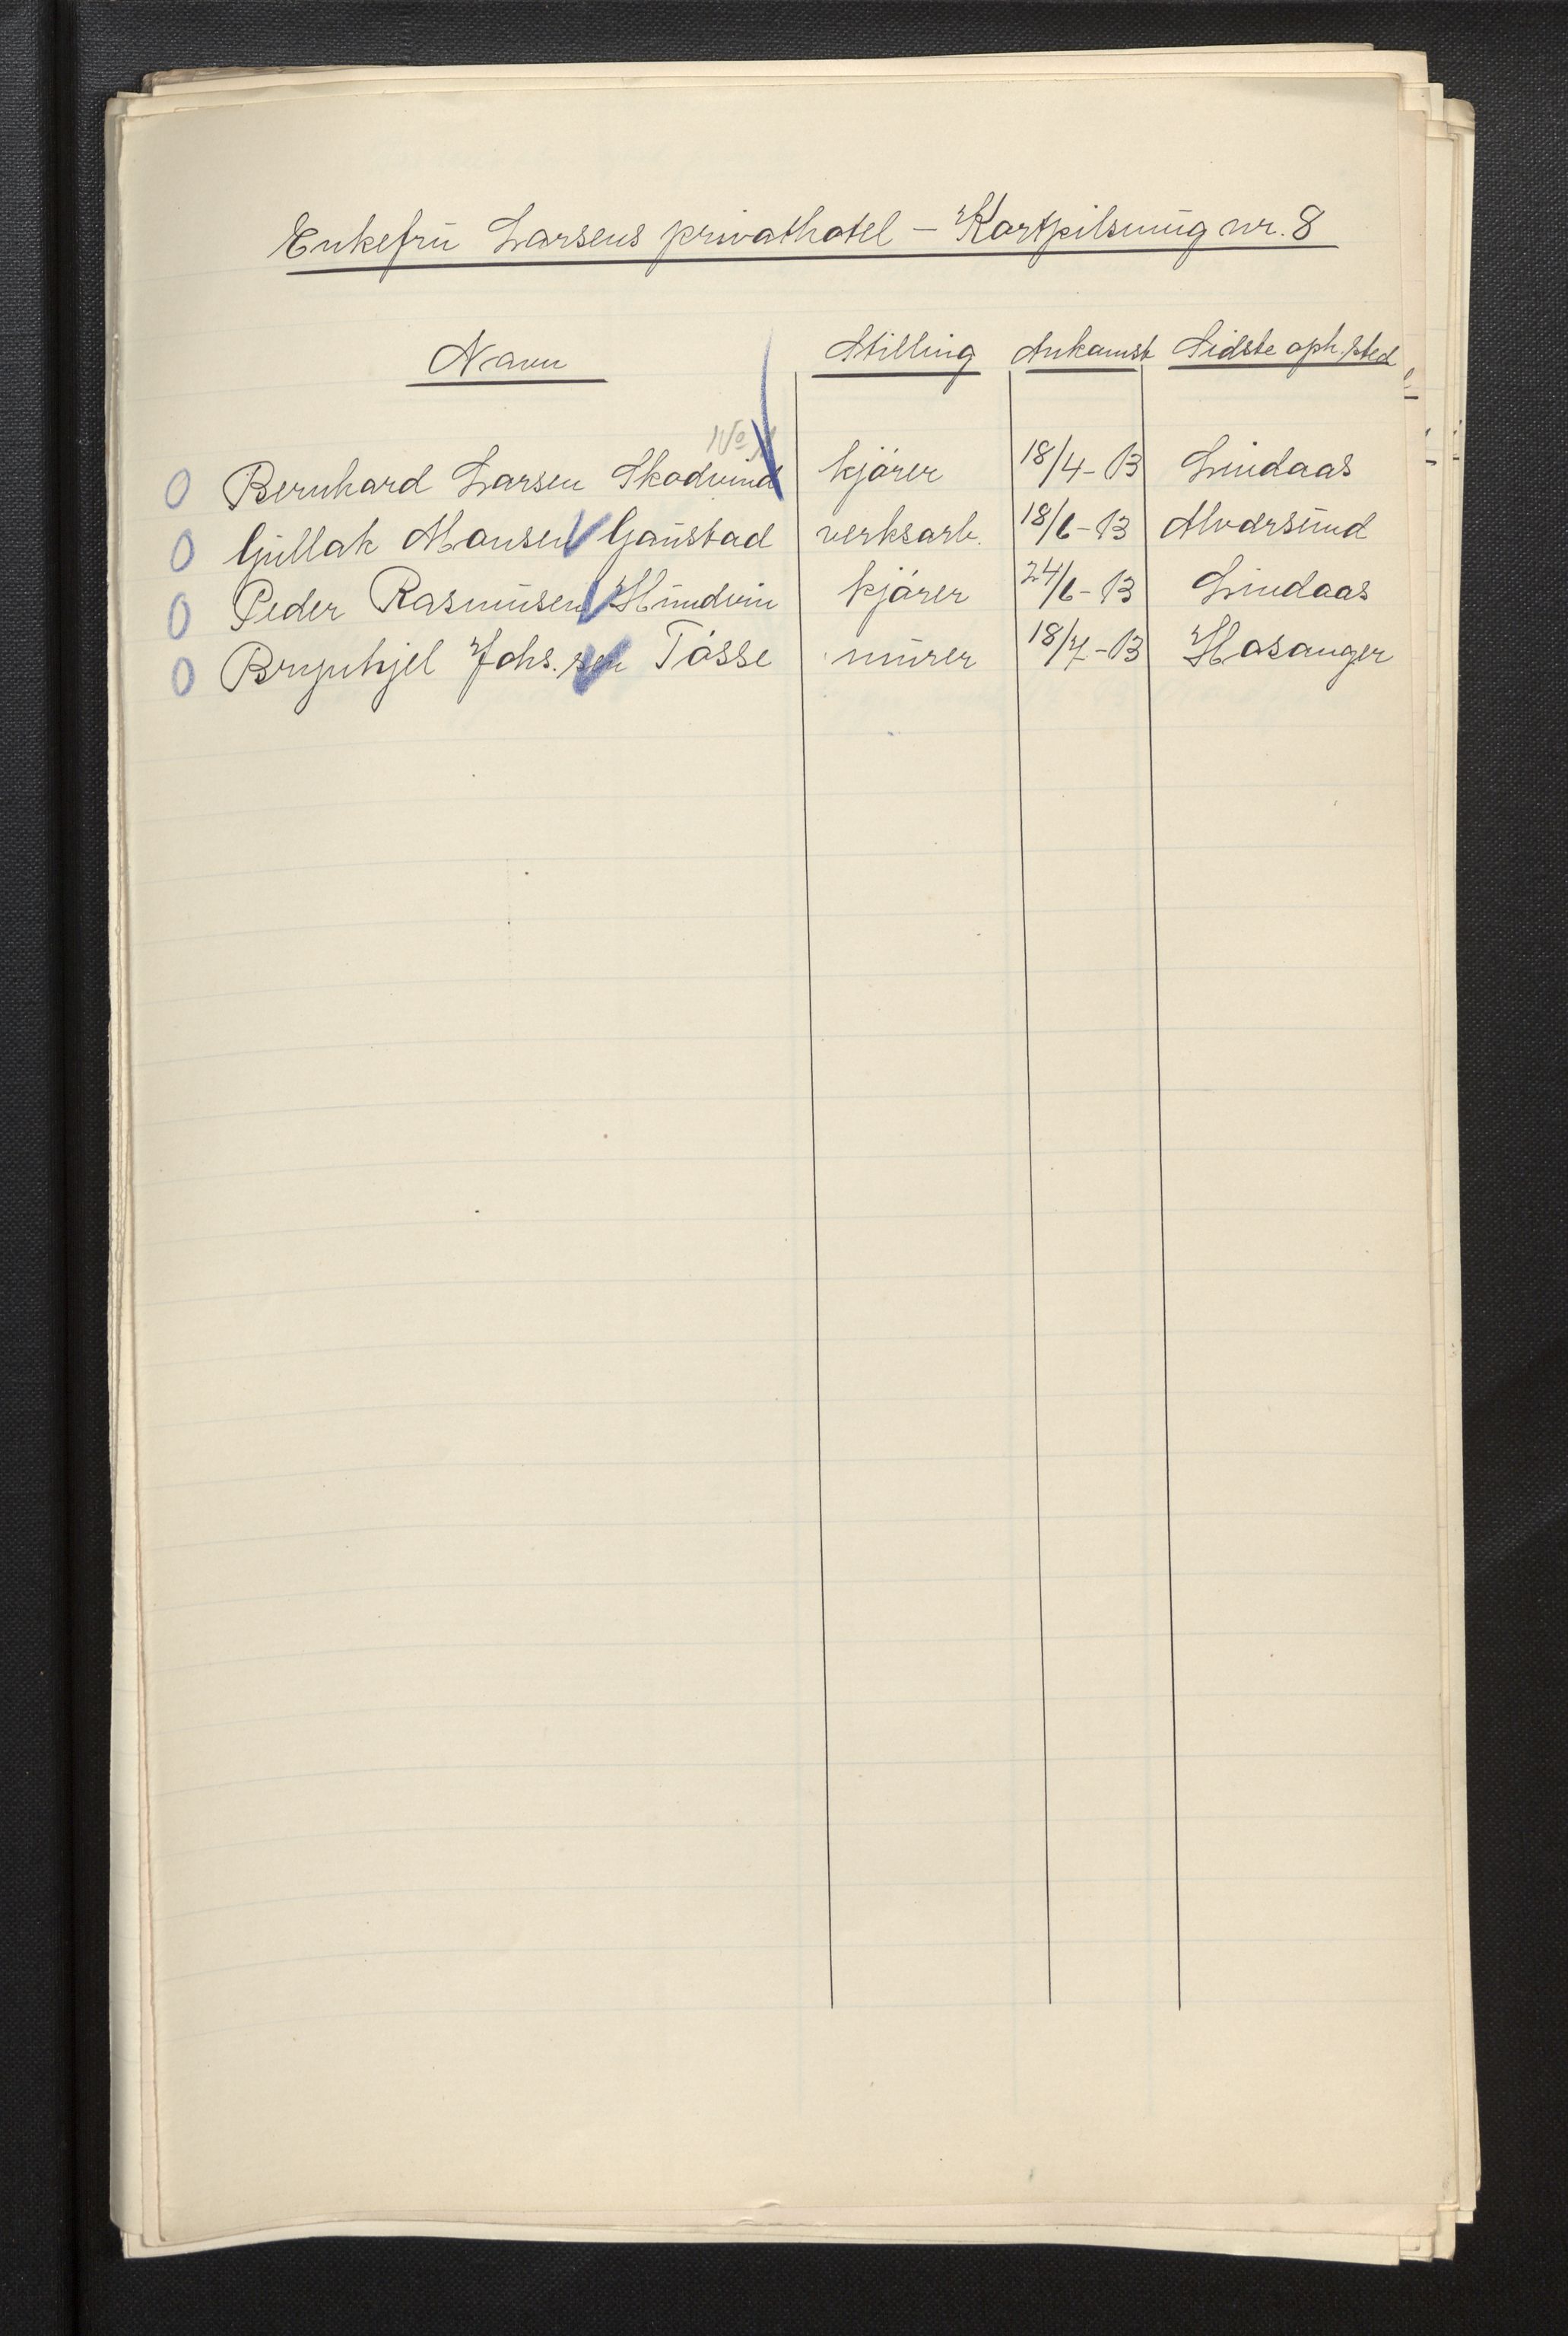 Enkefrü Larsens privathotel – Kortpilsmüg nr. 8
Navn Stilling Ankomst Sidste oph.sted
No
0 Bernhard Larsen Skodvind kjörer 18/4-13 Lindaas
0 Güllak Monsen Gaustad verksarb. 18/6-13 Alversünd
0 Peder Rasmüsen Hündvin kjörer 24/6-13 Lindaas
0 Brynhjel Johs.sen Tösse mürer 18/7-13 Hosanger